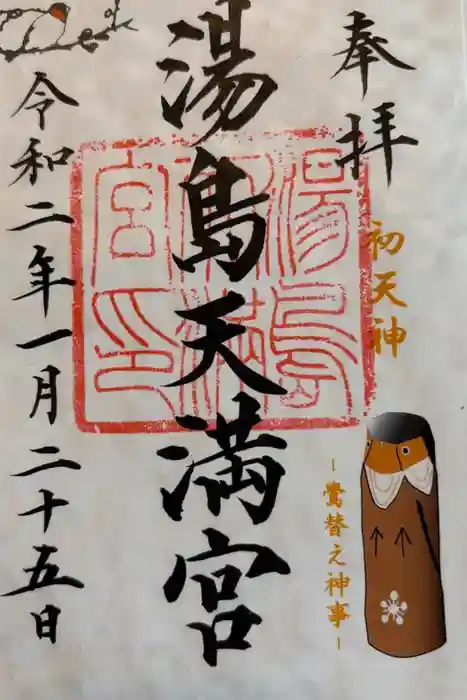 奉拝
初天神
-鷽替え神事-
湯島天満宮
湯島天満宮印
令和二年一月二十五日